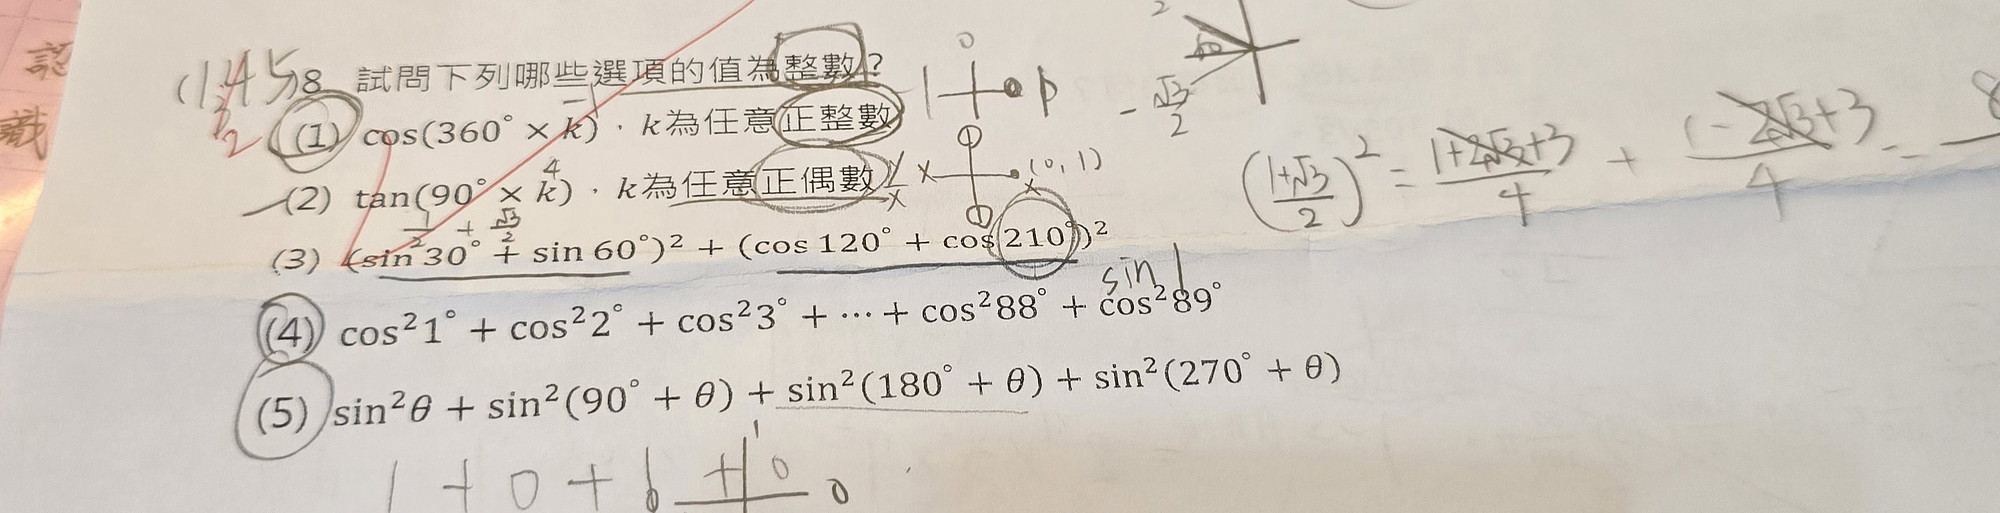 認
識
(1345 8. 試問下列哪些選項的值為整數？
(1) cos(360° × k)，k為任意正整數
(2) tan(90° × k)，k為任意正偶數
(3) (sin 30° + sin 60°)² + (cos 120° + cos 210°)²
(4) cos²1° + cos²2° + cos²3° + ⋯ + cos²88° + cos²89°
(5) sin²θ + sin²(90° + θ) + sin²(180° + θ) + sin²(270° + θ)
-1
4
y/x
(0, 1)
1/2 + √3/2
sin 1
-√3/2
((1+√3)/2)² = (1+2√3+3)/4 + (1-2√3+3)/4 = 8
1 + 0 + 1 + 0